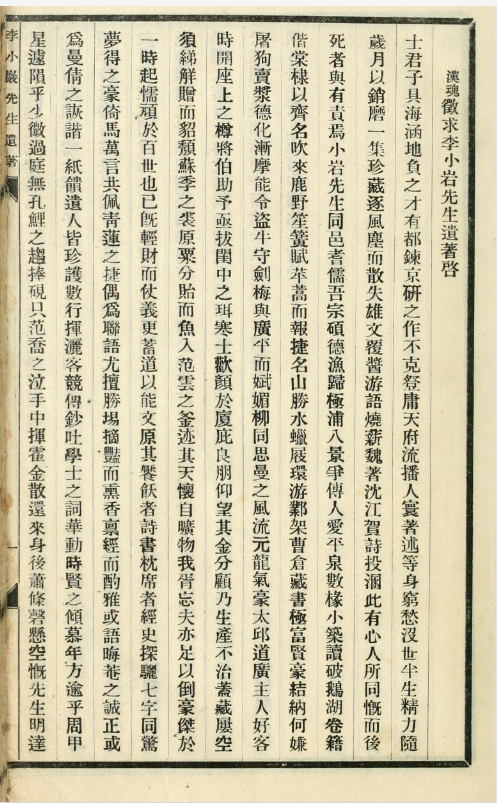 漢魂徵求李小岩先生遺著啓
士君子具海涵地負之才有都鍊京研之作不克登庸天府流播人寰著述等身窮愁沒世半生精力隨
歲月以銷磨一集珍藏逐風塵而散失雄文覆醬游語燒薪魏著沈江賀詩投溷此有心人所同慨而後
死者與有責焉小岩先生同邑耆儒吾宗碩德漁歸極浦八景爭傳人愛平泉數椽小築讀破鵝湖卷籍
偕棠棣以齊名吹來鹿野笙簧賦苹蒿而報捷名山勝水蠟屐環游鄴架曹倉藏書極富賢豪結納何嫌
屠狗賣漿德化漸摩能令盜牛守劍梅與廣平而斌媚柳同思曼之風流元龍氣豪太邱道廣主人好客
時開座上之樽將伯助予亟拔閨中之珥寒士歡顏於廈庇良朋仰望其金分顧乃生產不治蓋藏屢空
須綈解贈而貂頹蘇季之裘原粟分貽而魚入范雲之釜迹其天懷自曠物我胥忘夫亦足以倒豪傑於
一時起懦頑於百世也已旣輕財而仗義更蓄道以能文原其饜飫者詩書枕席者經史探驪七字同驚
夢得之豪倚馬萬言共佩靑蓮之捷偶爲聯語尤擅勝場摘豔而熏香稟經而酌雅或語晦菴之誠正或
爲曼倩之詼諧一紙饋遺人皆珍護數行揮灑客競傳鈔吐學士之詞華動時賢之傾慕年方逾乎周甲
星遽隕乎少微過庭無孔鯉之趨捧硯只范喬之泣手中揮霍金散還來身後蕭條磬懸空慨先生明達
李小巖先生遺著
一